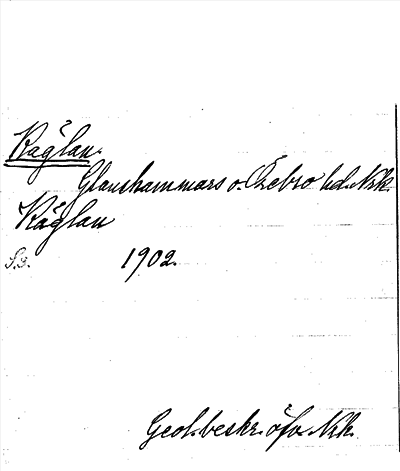 Räglan.
Glanshammars o. Örebro hd. Nrk.
Räglan
S. 3. 1902.
Geol. beskr. öfv. Nrk.